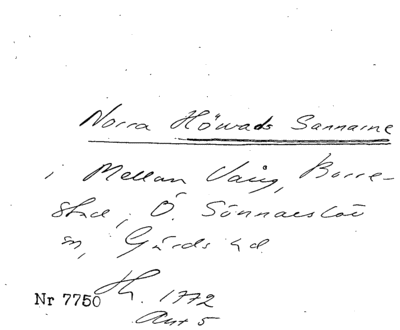 Norra Höwads Sannarne
i Mellan Vång, Borre-
stad, Ö. Sönnarslöv
sn, Gärds hd
Nr 7750 Th. 1772
Akt 5